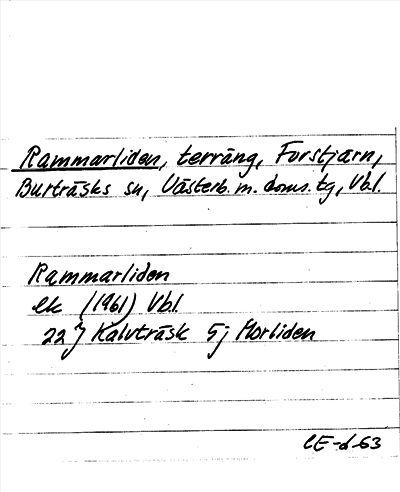 Rammarliden, terräng, Forstjärn,
Burträsks sn, Västerb. m. doms. tg, Vbl.
Rammarliden
ek (1961) Vbl.
22 J Kalvträsk 5j Morliden
CE-d-63